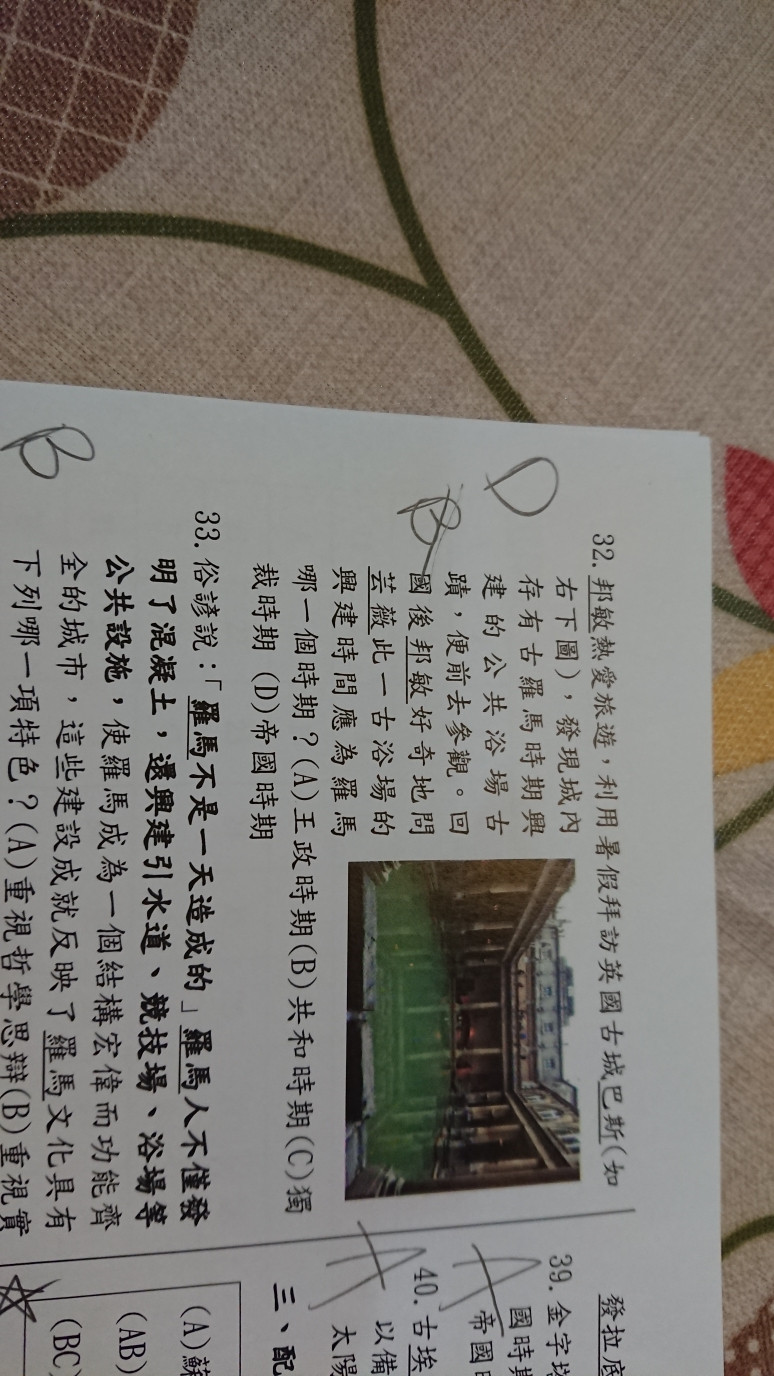 D
B
32. 邦敏熱愛旅遊，利用暑假拜訪英國古城巴斯(如
右下圖)，發現城內
存有古羅馬時期興
建的公共浴場古
蹟，便前去參觀。回
國後邦敏好奇地問
芸薇此一古浴場的
興建時間應為羅馬
哪一個時期？(A)王政時期(B)共和時期(C)獨
裁時期 (D)帝國時期
B
33. 俗諺說：「羅馬不是一天造成的」羅馬人不僅發
明了混凝土，還興建引水道、競技場、浴場等
公共設施，使羅馬成為一個結構宏偉而功能齊
全的城市，這些建設成就反映了羅馬文化具有
下列哪一項特色？(A)重視哲學思辯(B)重視實
發拉底
A
39. 金字塔
國時期
帝國時
A
40. 古埃
以備
太陽
三、配
(A)蘇
(AB)
(BC)